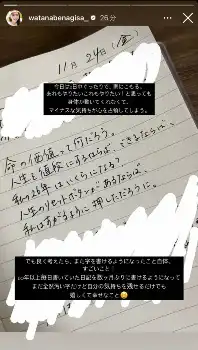 watanabenagisa_ 26分
11月24日(金)
今日は1日中ぐったりで、家にこもる。
あれもやりたいこれもやりたい！と思っても
身体が動いてくれなくて、
マイナスな気持ちが心を占領してしまう。
命の価値って何だろう。
人生も値段にするならば、できるならば、
私の26年はいくらになろう?
人生のリセットボタンがあるならば、
私はすがるように押しただろうに。
でも良く考えたら、また字を書けるようになったこと自体、
すごいこと！
年以上毎日書いていた日記を数ヶ月ぶりに書けるようになって
まだ全然汚い字だけど自分の気持ちを残せるだけでも
嬉しくて幸せなこと